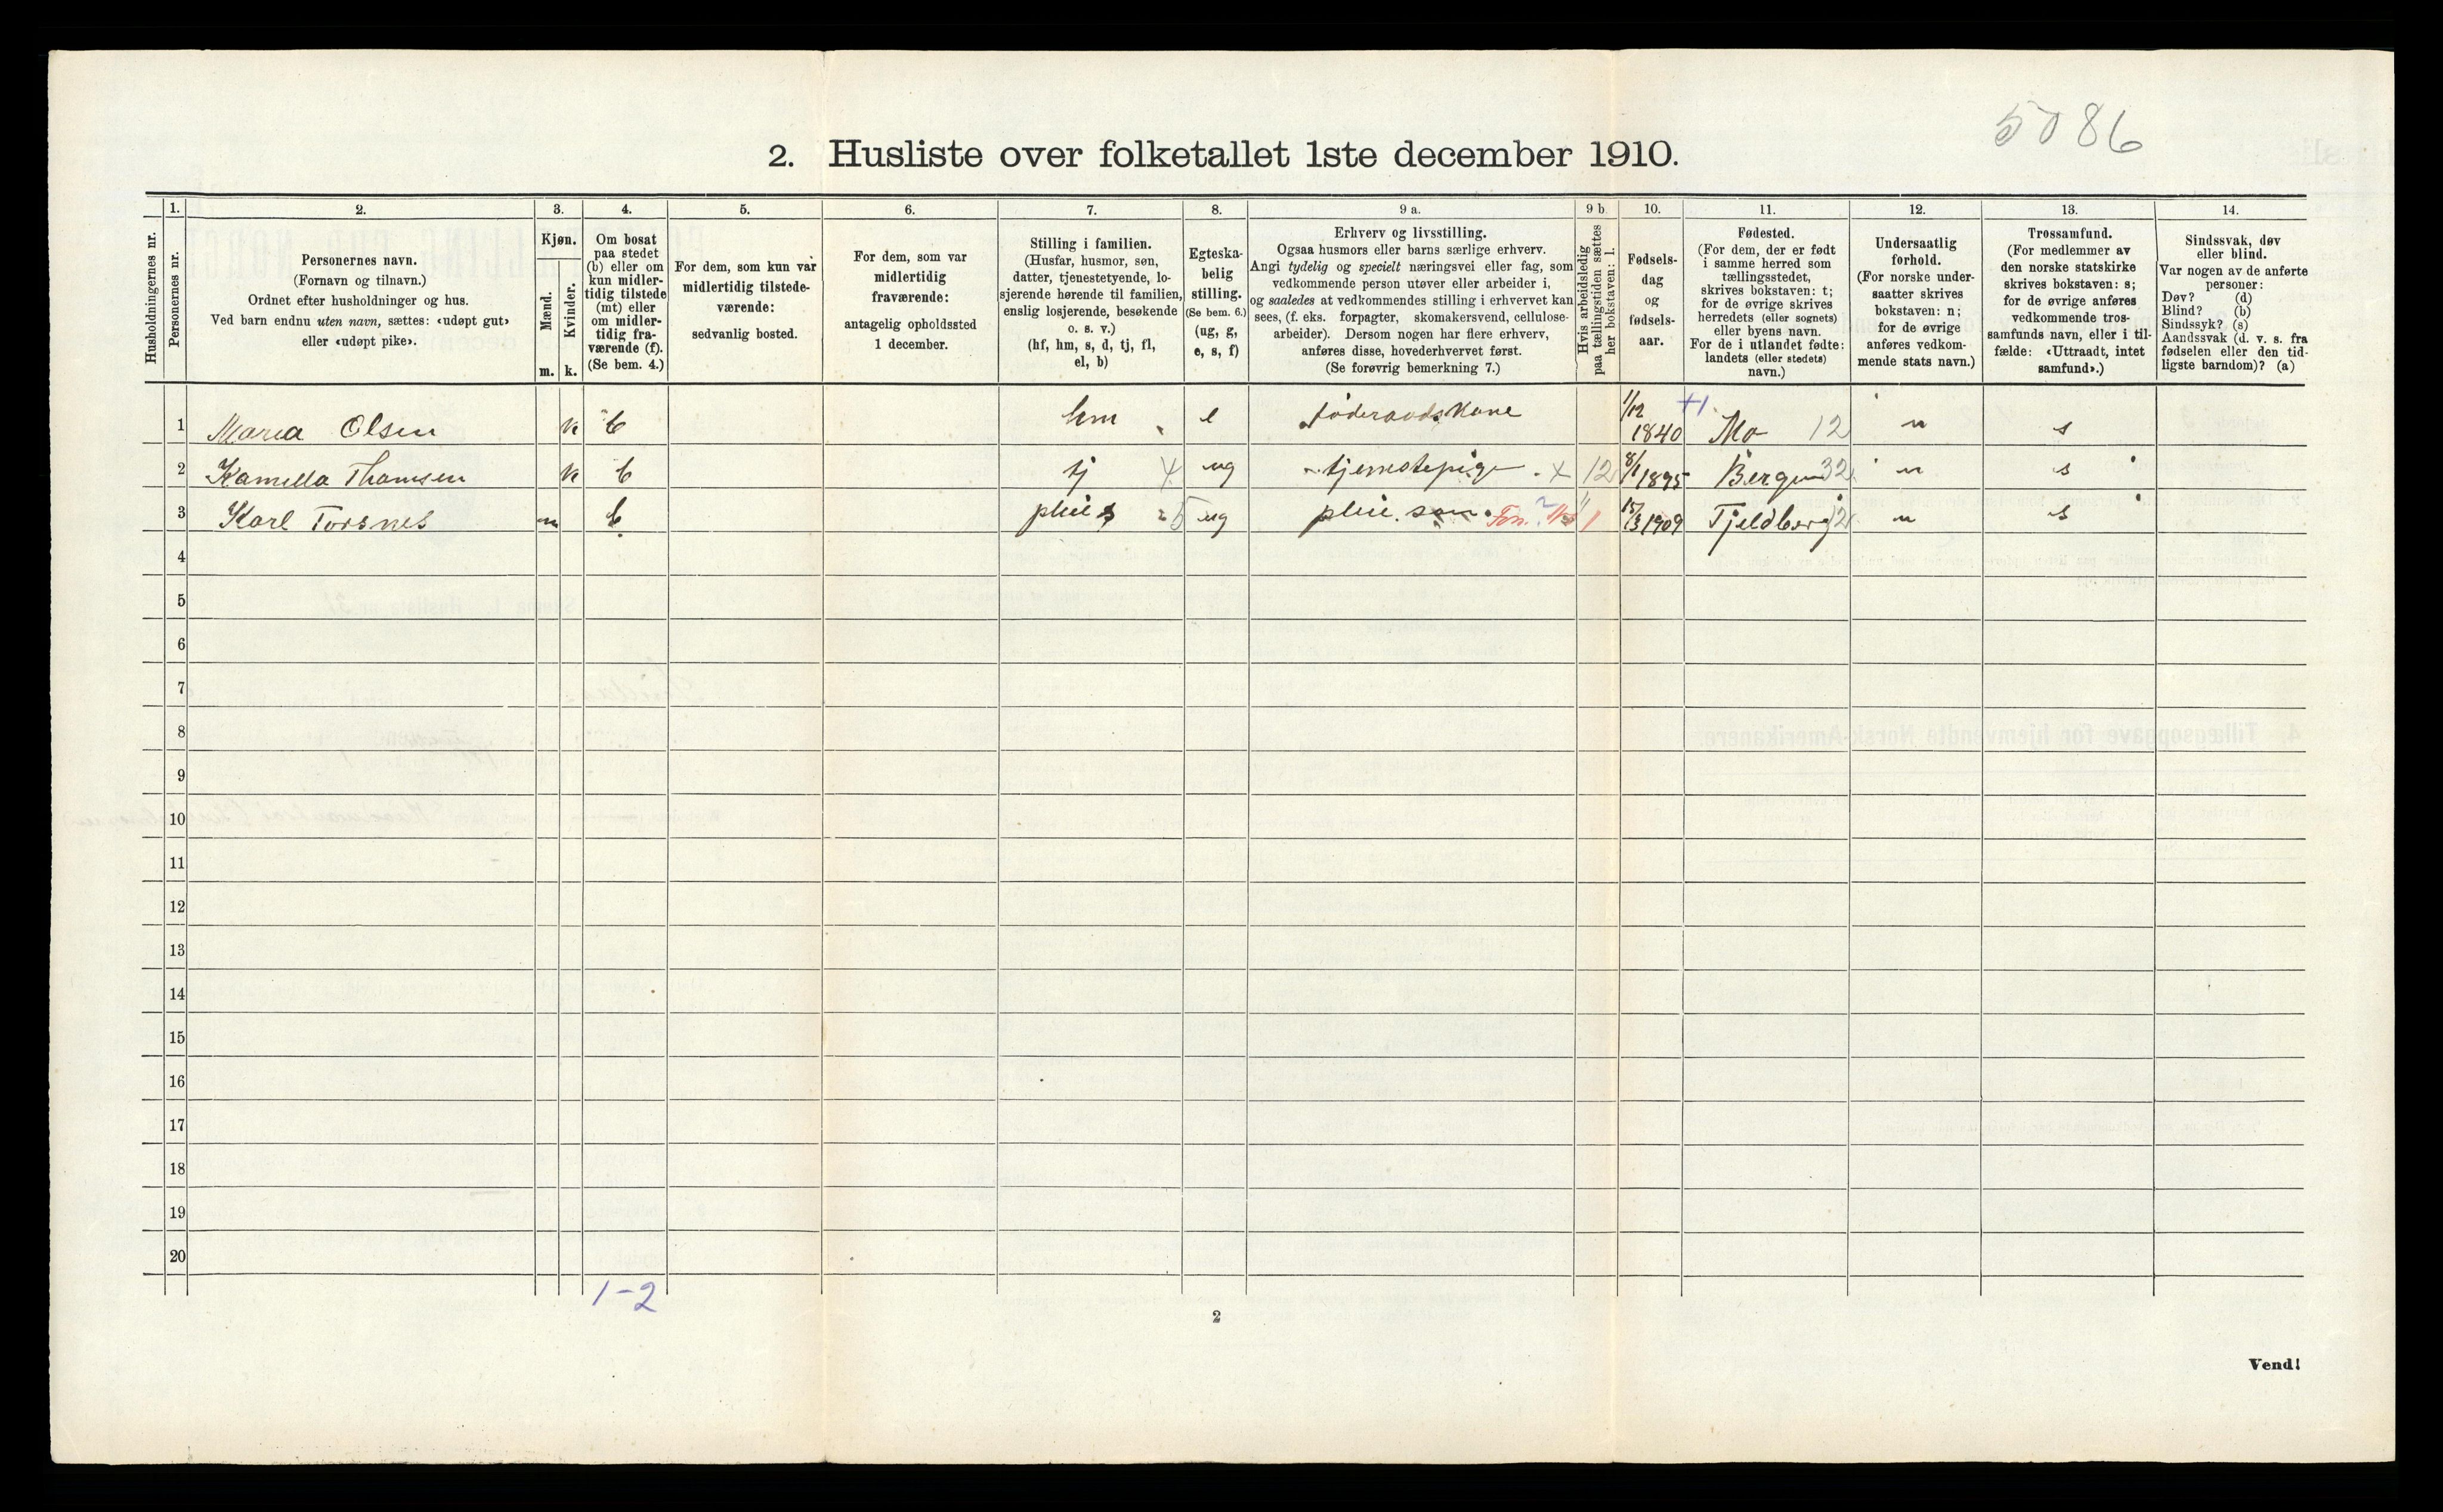 5086
2. Husliste over folketallet 1ste december 1910.
Husholdningernes nr.
1.
Personernes nr.
2.
Personernes navn.
(Fornavn og tilnavn.)
Ordnet efter husholdninger og hus.
Ved barn endnu uten navn, sættes: «udøpt gut»
eller «udøpt pike».
3.
Kjøn.
Mænd.
Kvinder.
m. k.
4.
Om bosat
paa stedet
(b) eller om
kun midler-
tidig tilstede
(mt) eller
om midler-
tidig fra-
værende (f).
(Se bem. 4.)
5.
For dem, som kun var
midlertidig tilstede-
værende:
sedvanlig bosted.
6.
For dem, som var
midlertidig
fraværende:
antagelig opholdssted
1 december.
7.
Stilling i familien.
(Husfar, husmor, søn,
datter, tjenestetyende, lo-
sjerende hørende til familien,
enslig losjerende, besøkende
o. s. v.)
(hf, hm, s, d, tj, fl,
el, b)
8.
Egteska-
belig
stilling.
(Se bem. 6.)
(ug, g,
e, s, f)
9 a.
Erhverv og livsstilling.
Ogsaa husmors eller barns særlige erhverv.
Angi tydelig og specielt næringsvei eller fag, som
vedkommende person utøver eller arbeider i,
og saaledes at vedkommendes stilling i erhvervet kan
sees, (f. eks. forpagter, skomakersvend, cellulose-
arbeider). Dersom nogen har flere erhverv,
anføres disse, hovederhvervet først.
(Se forøvrig bemerkning 7.)
9 b
Hvis arbeidsledig
paa tællingstiden sættes
her bokstaven: l.
10.
Fødsels-
dag
og
fødsels-
aar.
11.
Fødested.
(For dem, der er født
i samme herred som
tællingsstedet,
skrives bokstaven: t;
for de øvrige skrives
herredets (eller sognets)
eller byens navn.
For de i utlandet fødte:
landets (eller stedets)
navn.)
12.
Undersaatlig
forhold.
(For norske under-
saatter skrives
bokstaven: n;
for de øvrige
anføres vedkom-
mende stats navn.)
13.
Trossamfund.
(For medlemmer av
den norske statskirke
skrives bokstaven: s;
for de øvrige anføres
vedkommende tros-
samfunds navn, eller i til-
fælde: «Uttraadt, intet
samfund».)
14.
Sindssvak, døv
eller blind.
Var nogen av de anførte
personer:
Døv? (d)
Blind? (b)
Sindssyk? (s)
Aandssvak (d. v. s. fra
fødselen eller den tid-
ligste barndom)? (a)
1 Maria Olsen k b hm e føderaadskone 1/12 1840 +1 Mo 12 n s
2 Kamilla Thomsen k b tj 4 ug tjenestepige x 12 8/1 1895 Bergen 32 n s
3 Karl Torsnes m b pleie s 5 ug pleie. søn. 1 15/3 1909 Tjeldberg 12 n s
4
5
6
7
8
9
10
11
12
13
14
15
16
17
18
19
20
1-2
2
Vend!